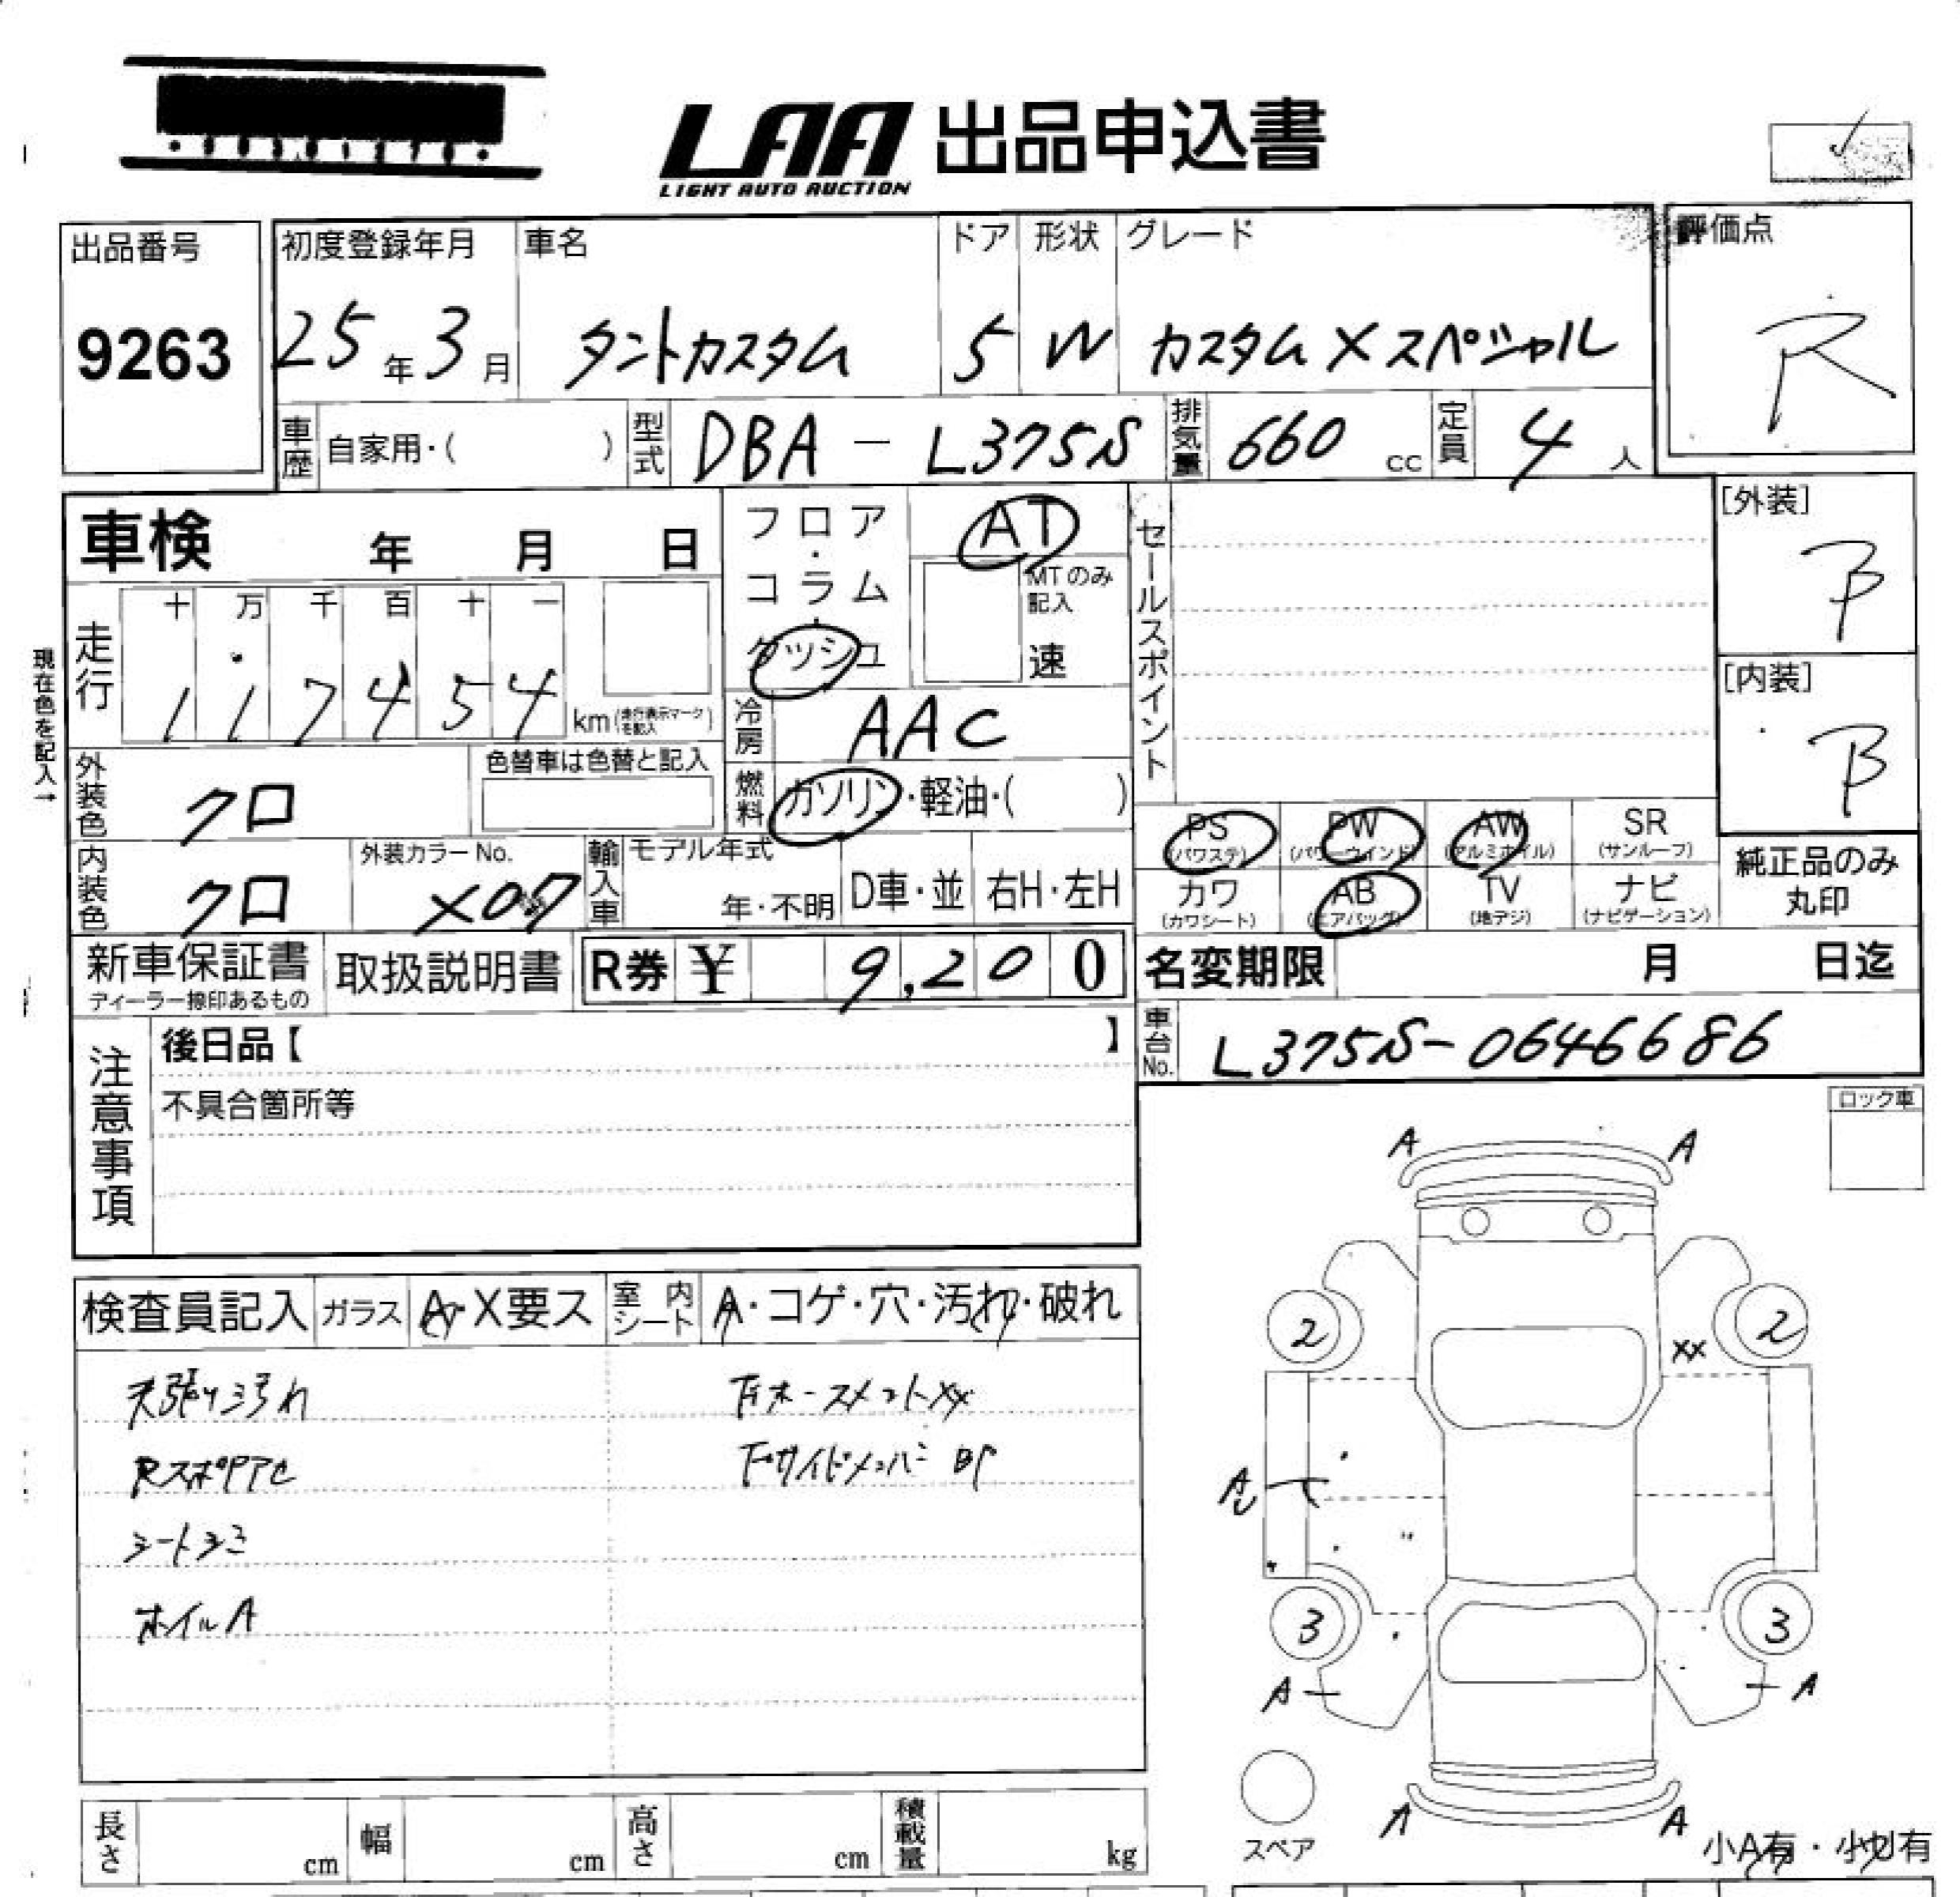 LAA 出品申込書
LIGHT AUTO AUCTION
出品番号
9263
初度登録年月
25年3月
車名
タントカスタム
ドア
5
形状
W
グレード
カスタムXスペシャル
評価点
R
車歴 自家用・( )
型式 DBA-L375S
排気量 660 cc
定員 4人
車検 年 月 日
フロア・コラム・ダッシュ
AT
MTのみ記入
速
セールスポイント
[外装]
B
[内装]
B
現在色を記入→
走行
十 万 千 百 十 一
1 1 7 4 5 4 km(走行表示マークを記入)
冷房 AAC
外装色 クロ
色替車は色替と記入
燃料 ガソリン・軽油・( )
PS (パワステ)
PW (パワーウインド)
AW (アルミホイル)
SR (サンルーフ)
内装色 クロ
外装カラーNo.
X07
輸入車
モデル年式
年・不明
D車・並
右H・左H
カワ (カワシート)
AB (エアバッグ)
TV (地デジ)
ナビ (ナビゲーション)
純正品のみ丸印
新車保証書
ディーラー捺印あるもの
取扱説明書
R券 ¥ 9,200
名変期限 月 日迄
車台No. L375S-0646686
注意事項
後日品【 】
不具合箇所等
ロック車
検査員記入
ガラス A・X要ス
室内シート A・コゲ・穴・汚れ・破れ
天張り汚れ
シートシミ
ホイルA
A A
2 2
XX
A
3 3
A A
A A
スペア
小A有・小U有
長さ cm
幅 cm
高さ cm
積載量 kg